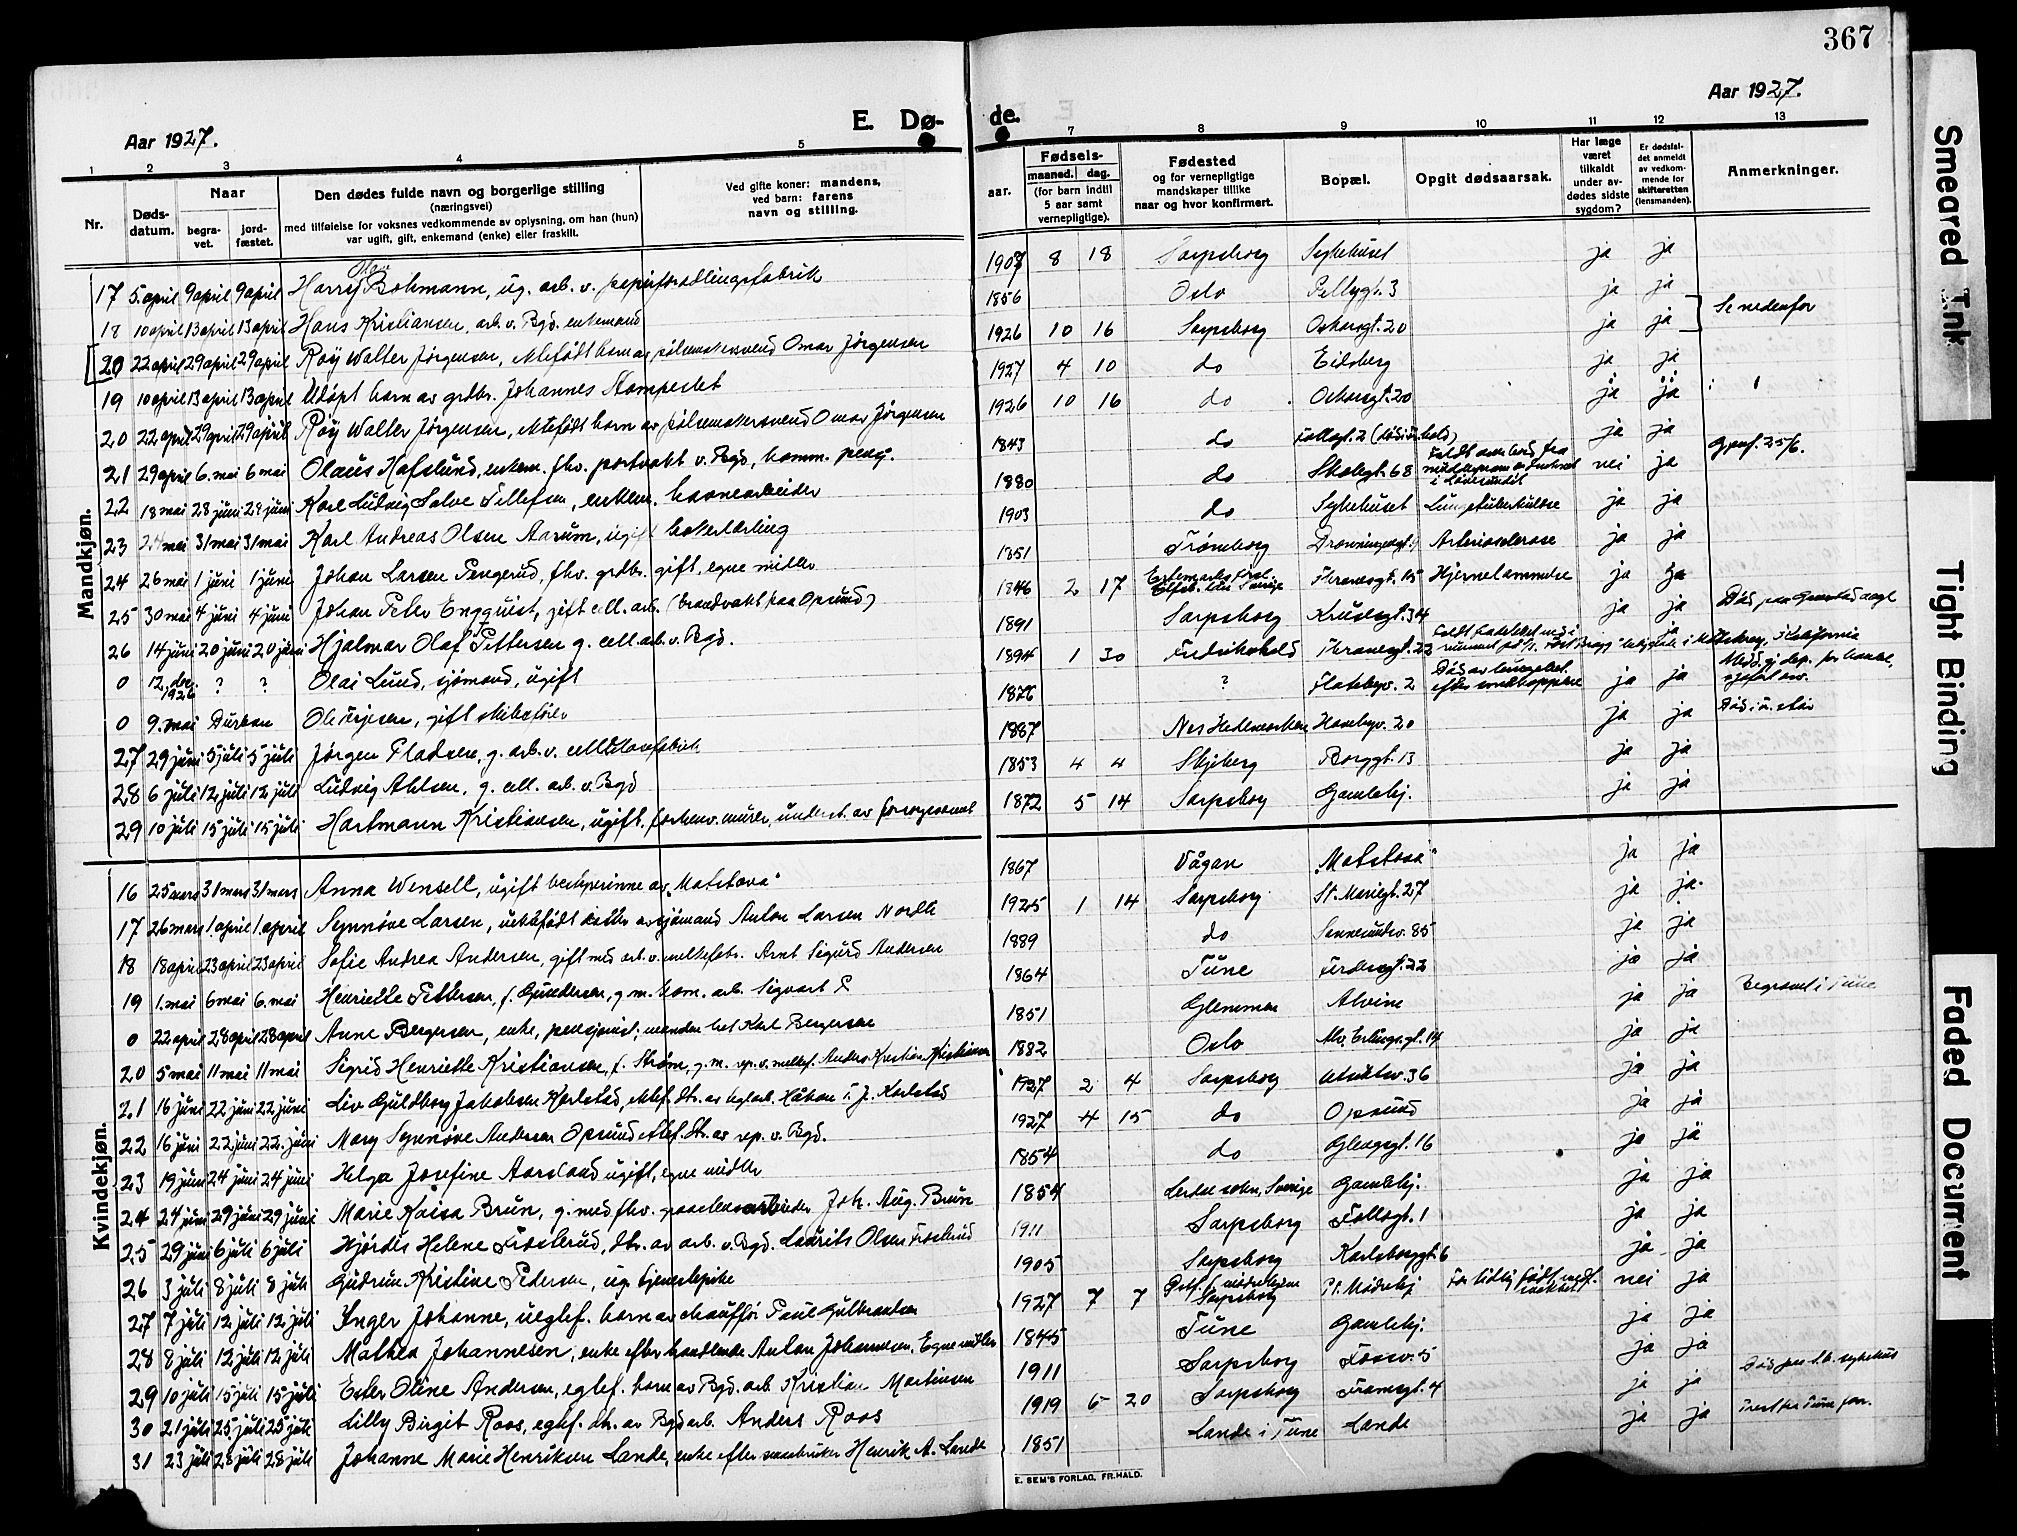 367
Aar 1927.
E. Dø- de.
Aar 1927.
1 2 3 4 5 7 8 9 10 11 12 13
Nr.
Døds-datum.
Naar
begra-vet.
jord-fæstet.
Den dødes fulde navn og borgerlige stilling
(næringsvei)
med tilføielse for voksnes vedkommende av oplysning, om han (hun)
var ugift, gift, enkemand (enke) eller fraskilt.
Ved gifte koner: mandens,
ved barn: farens
navn og stilling.
Fødsels-
aar.
maaned. dag.
(for barn indtil
5 aar samt
vernepligtige).
Fødested
og for vernepligtige
mandskaper tillike
naar og hvor konfirmert.
Bopæl.
Opgit dødsaarsak.
Har læge
været
tilkaldt
under av-
dødes sidste
sygdom?
Er dødsfal-
det anmeldt
av vedkom-
mende for
skifteretten
(lensmanden).
Anmerkninger.
Mandkjøn.
17 5. april 9 april 9 april Harry Olav Bohmann, ug. arb. v. papirforædlingsfabrik 1907 8 18 Sarpsborg Sykehuset ja ja
18 10 april 13 april 13 april Hans Kristiansen, arb. v. Bgd. enkemand 1856 Oslo Pellygt. 3 ja ja
20 22 april 29 april 29 april Roy Walter Jørgensen, ektefødt barn av pølsemakersvend Omar Jørgensen 1926 10 16 Sarpsborg Oskarsgt. 20 ja ja Se nedenfor
19 10 april 13 april 13 april Udøpt barn av grdbr. Johannes 1927 4 10 do Eidsberg ja ja
20 22 april 29 april 29 april Roy Walter Jørgensen, ektefødt barn av pølsemakersvend Omar Jørgensen 1926 10 16 do Oskarsgt. 20 ja ja
21 29 april 6. mai 6 mai Olaus Hafslund, enkem. fhv. portvakt v. Bgd, komm. pens. 1843 do ja ja
22 18 mai 28 juni 28 juni Karl Ludvig Salve Tellefsen, enkem. havnearbeider 1880 do Skolegt. 68 nei ja
23 24 mai 31 mai 31 mai Karl Andreas Olsen Aarum, ugift bakerlærling 1903 do Sykehuset Lungetuberkulose ja ja
24 26 mai 1 juni 1 juni Johan Larsen Pengerud, fhv. grdbr. gift, egne midler 1851 Trømborg Dronningensgt. Arteriosclerose ja ja
25 30 mai 4 juni 4 juni Johan Peter Engquist, gift cell. arb. (brandvakt paa Opsund) 1846 2 17 Hjernelammelse ja ja
26 14 juni 20 juni 20 juni Hjalmar Olaf Pettersen g. cell. arb. v. Bgd. 1891 Sarpsborg Kruses gt. 34 ja ja
0 12. dec. 1926 ? ? Olai Lund, sjømand, ugift 1894 1 30 Fredrikshald ja
0 9. mai Durban Ole, gift 1876 ? ja ja
27 29 juni 5 juli 5 juli Jørgen Pladsen, g. arb. v. cellulosefabrik. 1887 Nes Hedemarken Havebyv. 20 ja ja
28 6 juli 12 juli 12 juli Ludvig Ahlsen, g. cell. arb. v. Bgd 1853 4 4 Skjeberg Borggt. 13 ja ja
29 10 juli 15 juli 15 juli Hartmann Kristiansen, ugift, forhenv. murer, underst. av forsorgsvesenet 1872 5 14 Sarpsborg Gamlehj. ja ja
Kvindekjøn.
16 25 mars 31 mars 31 mars Anna Wensell, ugift bestyrerinne av „Matstova" 1867 Vågan „Matstova" ja ja
17 26 mars 1. april 1. april Synnøve Larsen, uektefødt datter av sjømand Anton Larsen Nordli 1925 1 14 Sarpsborg St. Mariegt. 27 ja ja.
18 18 april 23 april 23 april Sofie Andrea Andersen, gift med arb. v. melkefabr. Arnt Sigurd Andersen 1889 do Sannesundsv. 85 ja ja
19 1. mai 6 mai 6. mai Henriette Pettersen, f. Gundersen, g. m. kom. arb. Sigvart P. 1864 Tune 22 ja ja
0 22 april 28 april 28 april Anne Bergersen, enke, pensjonist; manden het Karl Bergersen 1851 Glemmen Alvim ja ja Begravet i Tune
20 5 mai 11 mai 11 mai Sigrid Henriette Kristiansen, f. Strøm, g. m. rep. v. melkef. Anders Kristian Kristiansen 1882 Oslo 14 ja ja
21 16 juni 22 juni 22 juni Liv Guldborg Jakobsen Karlstad, ektef. dtr. av Håkon Karlstad 1927 2 4 Sarpsborg Utsiktsv. 36 ja ja
22 16 juni 22 juni 22. juni Mary Synnøve Andersen Opsund ektef. dtr. av rep. v. Bgd. 1927 4 15 do Opsund ja ja
23 19 juni 24 juni 24 juni Helga Josefine Aarsland ugift, egne midler 1854 do Glengsgt. 16 ja ja
24 24 juni 29 juni 29 juni Marie Kaisa Brun, g. med fhv. Joh. Aug. Brun 1854 Sverige Gamlehj. ja ja
25 29 juni 6 juli 6 juli Hjørdis Helene Frøslerud, dtr. av arb. v. Bgd. Laurits Olsen Frøslerud 1911 Sarpsborg Follogt. 1 ja ja
26 3 juli 8 juli 8 juli Gudrun Kristine Pedersen, ug. tjenestepike 1905 Sarpsborg Karlsborggt. 6 ja ja
27 7 juli 12 juli 12 juli Inger Johanne, uegtef. barn av chauffør Paul Gulbrandsen 1927 7 7 Sarpsborg For tidlig født nei ja
28 8 juli 12 juli 12 juli Mathea Johannesen, enke efter handlende Anton Johannesen. Egne midler 1845 Tune Gamlehj. ja ja
29 10 juli 15 juli 15 juli Ester Oline Andersen, egtef. barn av Bgd. arb. Kristian Martinsen 1911 Sarpsborg Fossv. 5 ja ja
30 21 juli 25 juli 25 juli Lilly Birgit Roos, egtef. dtr. av Bgd arb. Anders Roos 1919 5 20 Sarpsborg Framsgt. 4 ja ja
31 23 juli 28 juli 28 juli Johanne Marie Henriksen Lande, enke efter Henrik A. Lande 1851 Lande i Tune Lande ja ja
E. SEM'S FORLAG, FR.HALD.
Smeared Ink
Tight Binding
Faded Document